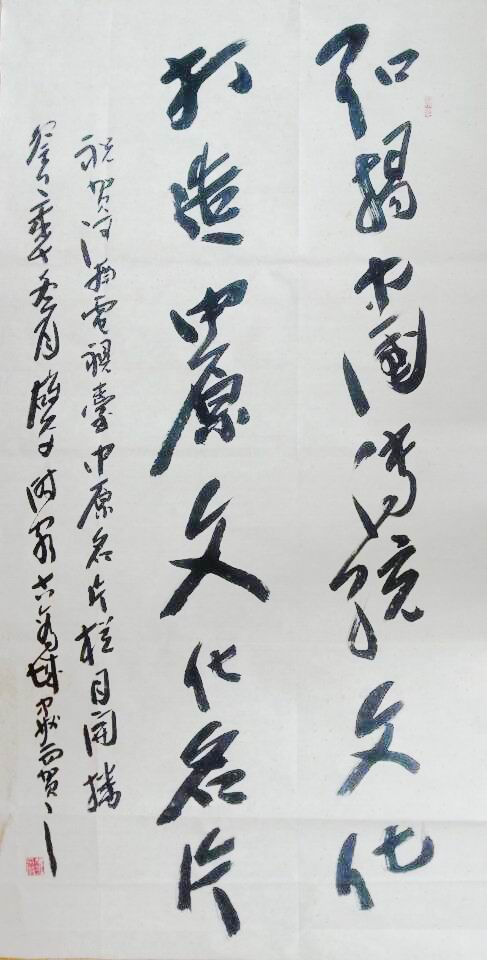 弘揚中國傳統文化
打造中原文化名片
祝贺河南電視臺中原名片栏目開播
癸巳 月 古商城 贺